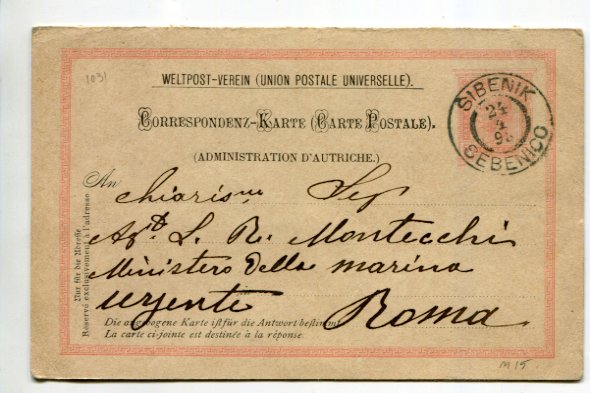 1031
WELTPOST-VEREIN (UNION POSTALE UNIVERSELLE).
SIBENIK
24
4
SEBENICO
CORRESPONDENZ-KARTE (CARTE POSTALE).
(ADMINISTRATION D'AUTRICHE.)
An
L. R. Montecchi
Ministero della marina
urgente Roma
Nur für die Adresse
Réservé exclusivement à l'adresse
Die angebogene Karte ist für die Antwort bestimmt
La carte ci-jointe est destinée à la réponse
M 15